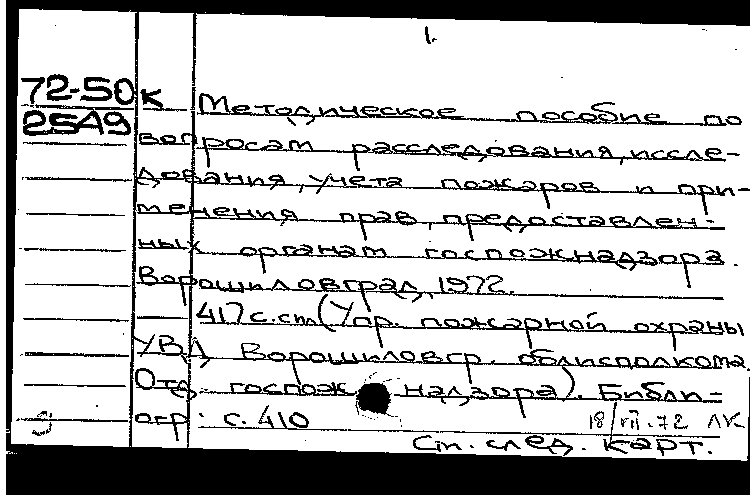 1.
72-50 К Методическое пособие по
25А9 вопросам расследования, иссле-
дования, учета пожаров и при-
менения прав, предоставлен-
ных органам госпожнадзора.
Ворошиловград, 1972.
417 с. сил (Упр. пожарной охраны
УВД Ворошиловгр. облисполкома.
Отд. госпож надзора). Библи-
огр: с. 410
18/VII.72 ЛК
См. след. карт.